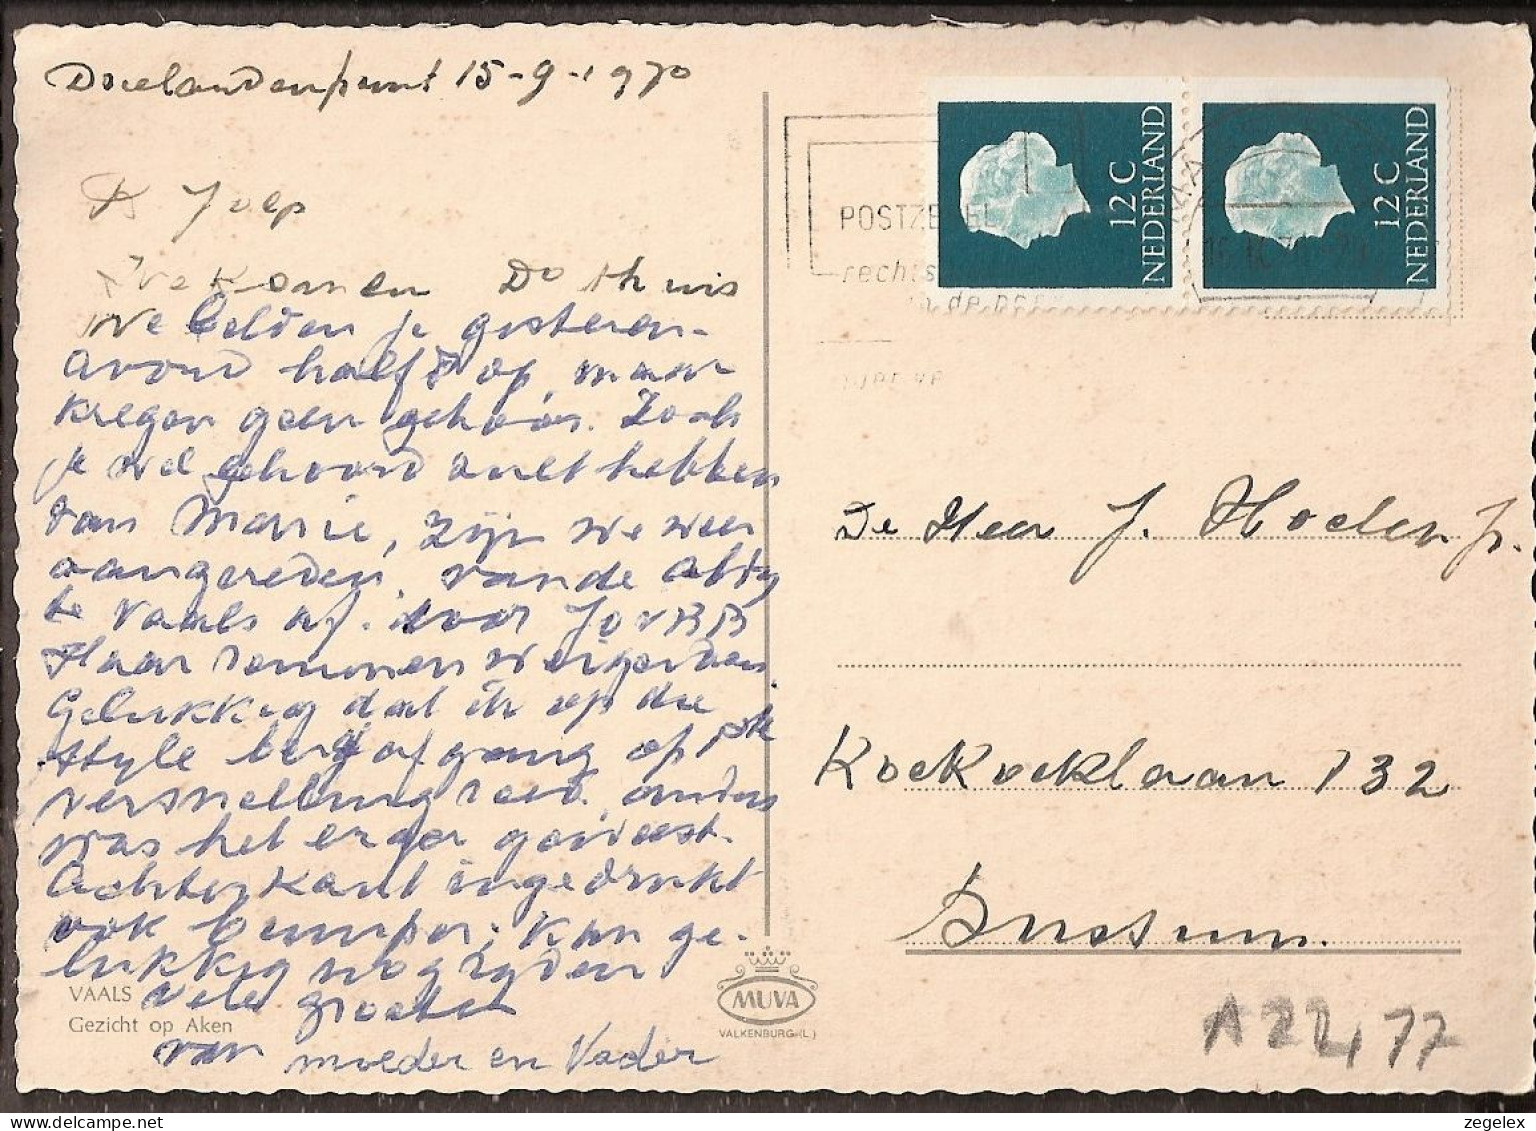 Drielandenpunt 15-9-1970
B Joep
We komen Do thuis
We belden je gisteren-
avond half 8 op, maar
kregen geen gehoor. Zoals
je wel gehoord zult hebben
van Marie, zijn we weer
aangereden, van de
te Vaals af. door
Haar remmen weigerden.
Gelukkig dat ik op die
steile berg afgang op
versnelling reed. anders
was het erger geweest.
Achterkant ingedrukt
ook bumper; kan ge-
lukkig nog rijden
vele groeten
van moeder en Vader
VAALS
Gezicht op Aken
MUVA
VALKENBURG-(L)
POSTZEGEL
rechts
in de
12 C
NEDERLAND
12 C
NEDERLAND
De Heer J. Hoelen Jr.
Koekoeklaan 132
Bussum.
A 22477
zegelex